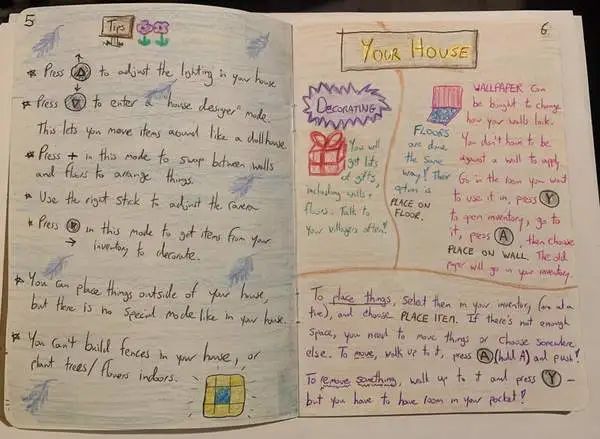 5
Tips
* Press to adjust the lighting in your house
* Press to enter a "house designer" mode.
This lets you move items around like a dollhouse.
* Press + in this mode to swap between walls
and floors to arrange things.
* Use the right stick to adjust the camera
* Press in this mode to get items from your
inventory to decorate.
* You can place things outside of your house,
but there is no special mode like in your house.
* You can't build fences in your house, or
plant trees/flowers indoors.
6
YOUR HOUSE
DECORATING
You will
get lots
of gifts,
including walls +
floors. Talk to
your villagers often!
FLOORS
are done
the same
way! Their
option is
PLACE ON
FLOOR.
WALLPAPER can
be bought to change
how your walls look.
You don't have to be
against a wall to apply.
Go in the room you want
to use it in, press Y
to open inventory, go to
it, press A, then choose
PLACE ON WALL. The old
paper will go in your inventory.
To place things, select them in your inventory (one at a
time), and choose PLACE ITEM. If there's not enough
space, you need to move things or choose somewhere
else. To move, walk up to it, press A (hold A) and push!
To remove something, walk up to it and press Y -
but you have to have room in your pocket!